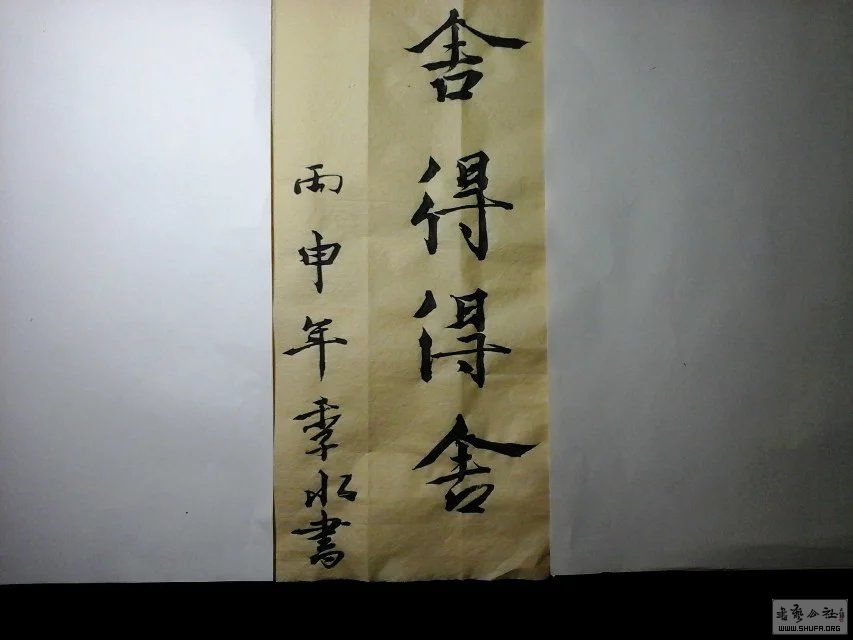 舍得得舍
丙申年季水書
書艺公社
WWW.SHUFA.ORG